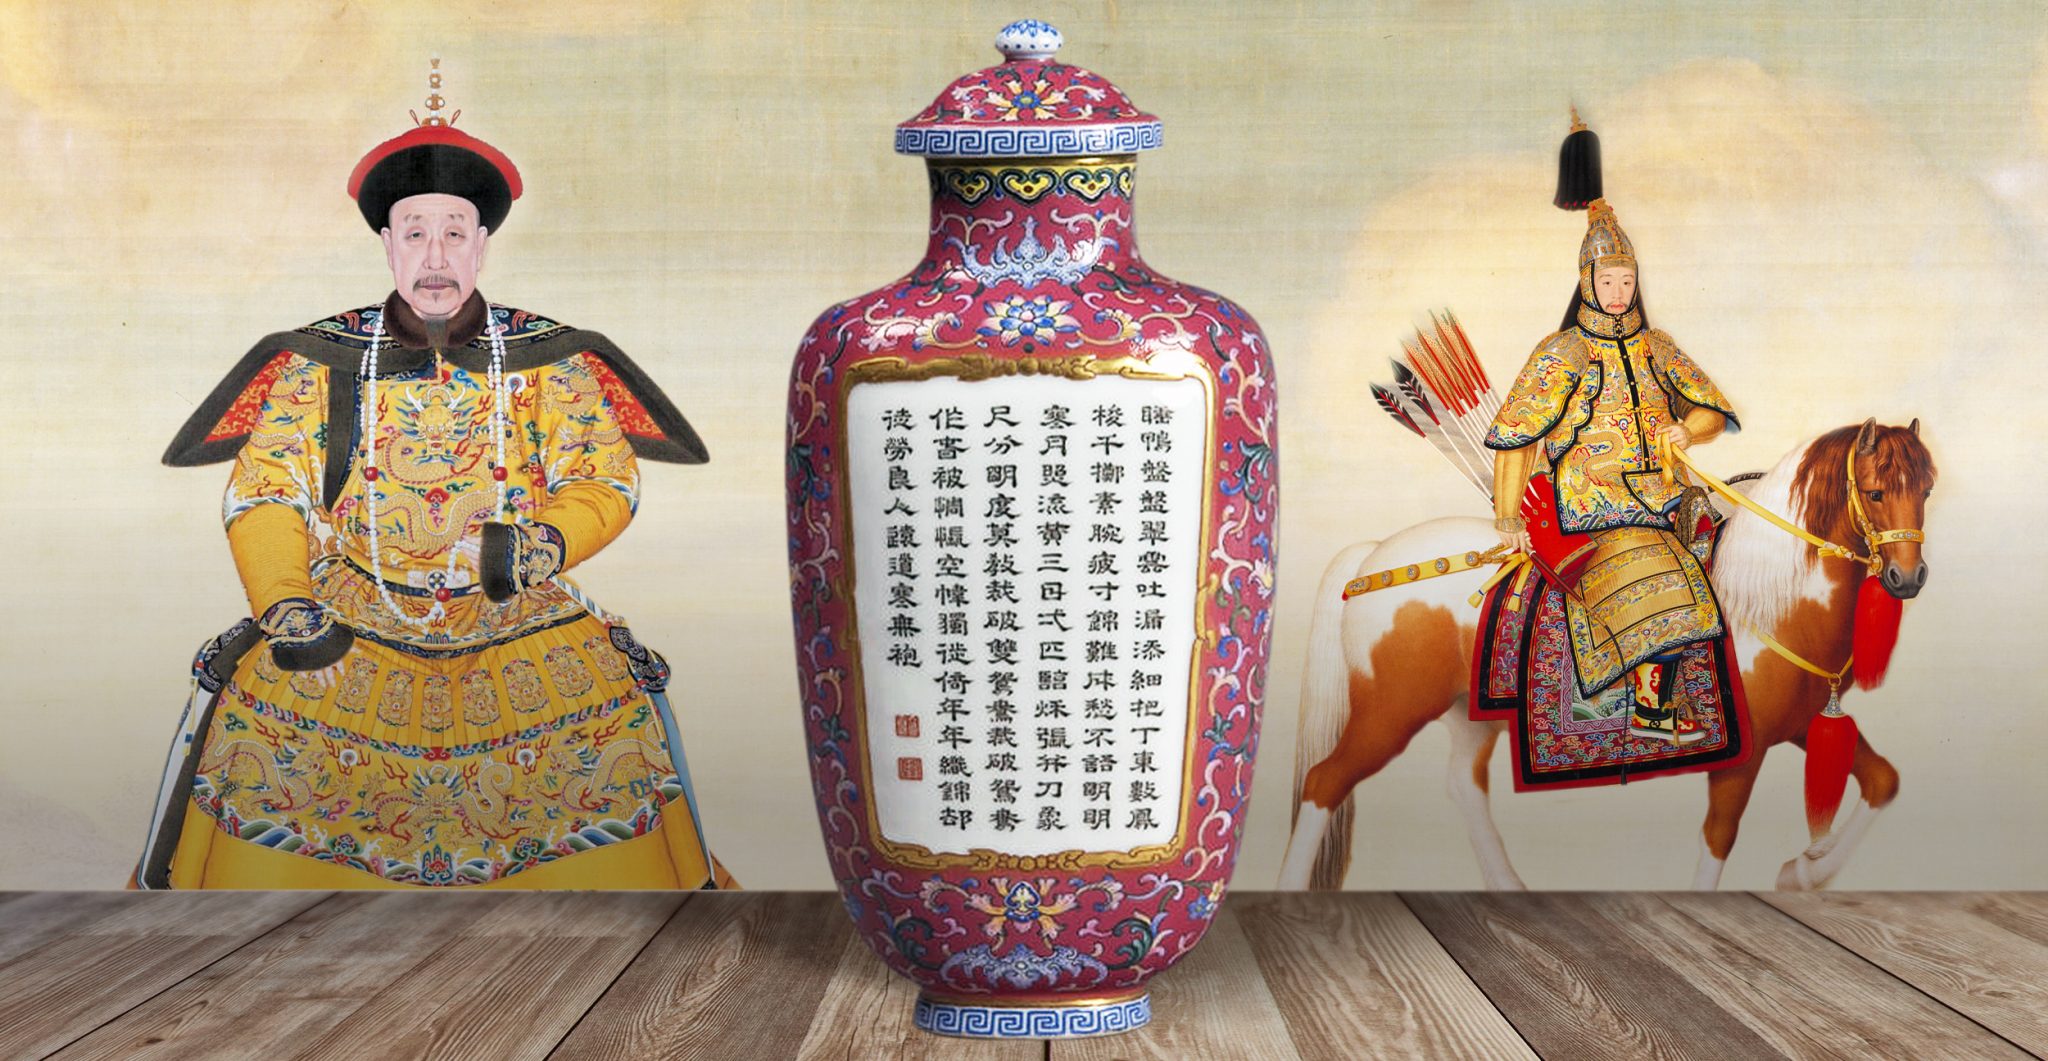 睡鴨盤盤翠吐漏添細把丁東數鳳
梭千擲素腕疲寸錦難成愁不語明明
寒月照流黃三日匹張并刀象
尺分明度莫教裁破雙鴛鴦裁破鴛鴦
作書被惆悵空幃獨徙倚年年織錦却
徒勞良人遠道寒無袍